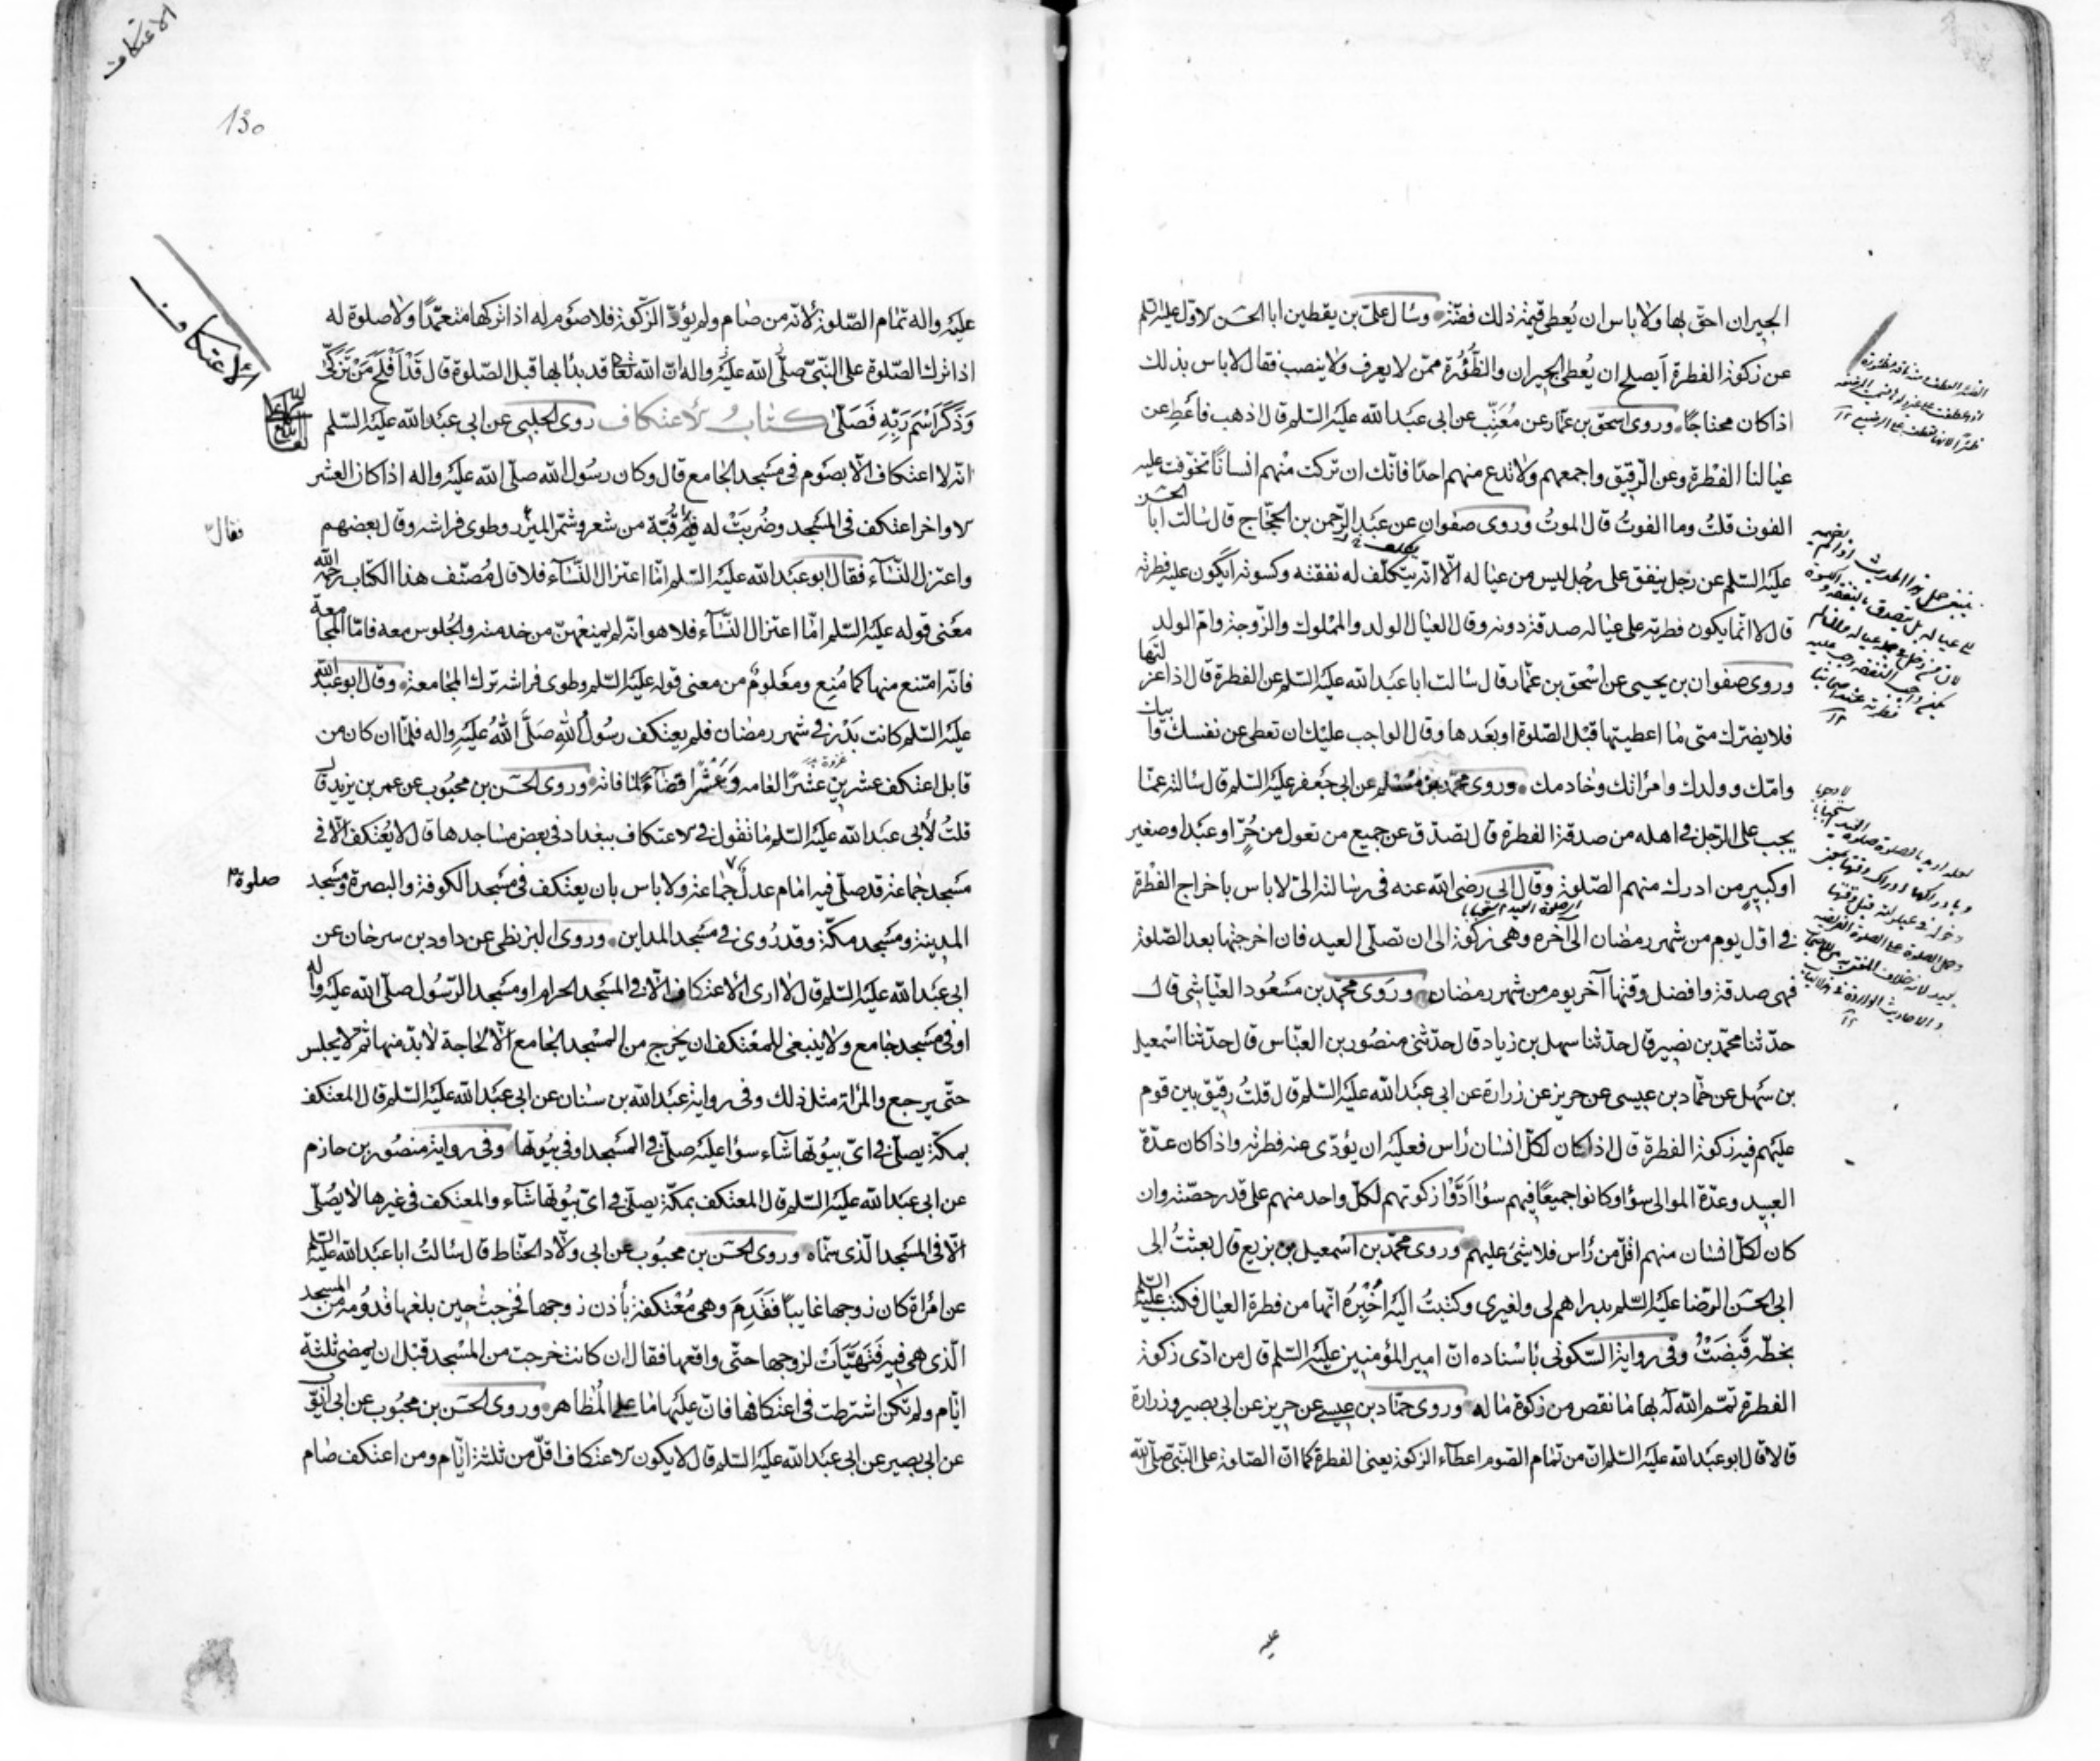 الجيران احق بها ولا باس ان يعطى قيمة ذلك فضة وسال علي بن يقطين ابا الحسن الاول عليه السلم
عن زكوة الفطرة أيصلح ان يُعطى الجيران والظُّؤُرة ممن لا يعرف ولا ينصب فقال لا باس بذلك
اذا كان محتاجًا وروى اسحق بن عمار عن مُعَتِّب عن ابى عبد الله عليه السلم قال اذهب فأعطِ عن
عيالنا الفطرة وعن الرقيق واجمعهم ولا تدع منهم احدًا فانك ان تركت منهم انسانًا تخوّفت عليه
الفوت قلتُ وما الفوتُ قال الموتُ وروى صفوان عن عبد الرحمن بن الحجّاج قال سالت ابا الحسن
عليه السلم عن رجل ينفق على رجل ليس من عياله الّا انه يتكلّف له نفقته وكسوته ايكون عليه فطرته
قال لا انما يكون فطرته على عياله صدقة دونه وقال العيال الولد والمملوك والزوجة وامّ الولد
وروى صفوان بن يحيى عن اسحق بن عمّار قال سالت ابا عبد الله عليه السلم عن الفطرة قال اذا عزلتها
فلا يضرّك متى ما اعطيتها قبل الصلوة او بعدها وقال الواجب عليك ان تعطى عن نفسك وابيك
وامّك وولدك وامراتك وخادمك وروى محمد بن مسلم عن ابى جعفر عليه السلم قال سالته عمّا
يجب على الرجل فى اهله من صدقة الفطرة قال تصدّق عن جميع من تعول من حُرّ او عبد او صغير
او كبير من ادرك منهم الصلوة وقال ابى رضى الله عنه فى رسالته الىّ لا باس باخراج الفطرة
فى اوّل يوم من شهر رمضان الى آخره وهى زكوة الى ان تصلّى العيد فان اخرجتها بعد الصلوة
فهى صدقة وافضل وقتها آخر يوم من شهر رمضان وروى محمد بن مسعود العيّاشى قال
حدّثنا محمد بن نصير قال حدّثنا سهل بن زياد قال حدّثنى منصور بن العبّاس قال حدّثنا اسمعيل
بن سهل عن حمّاد بن عيسى عن حريز عن زرارة عن ابى عبد الله عليه السلم قال قلتُ رقيق بين قوم
عليهم فيه زكوة الفطرة قال اذا كان لكلّ انسان رأس فعليه ان يؤدّى عنه فطرته واذا كان عدّة
العبيد وعدّة الموالى سواء وكانوا جميعًا فيهم سواء ادّوا زكوتهم لكلّ واحد منهم على قدر حصّته وان
كان لكلّ انسان منهم اقلّ من رأس فلا شىء عليهم وروى محمد بن اسمعيل بن بزيع قال بعثتُ الى
ابى الحسن الرضا عليه السلم بدراهم لى ولغيرى وكتبتُ اليه أُخبِرُه انّها من فطرة العيال فكتب عليه السلم
بخطّه قَبَضتُ وفى رواية السكونى باسناده انّ امير المؤمنين عليه السلم قال من ادّى زكوة
الفطرة تمّم الله له بها ما نقص من زكوة ماله وروى حمّاد بن عيسى عن حريز عن ابى بصير وزرارة
قالا قال ابو عبد الله عليه السلم انّ من تمام الصوم اعطاء الزكوة يعنى الفطرة كما انّ الصلوة على النبى صلى الله
عليه
الاعتكاف
130
الاعتكاف
عليه واله تمام الصلوة لانّه من صام ولم يؤدّ الزكوة فلا صوم له اذا تركها متعمّدًا ولا صلوة له
اذا ترك الصلوة على النبىّ صلّى الله عليه واله انّ الله تعالى قد بدأ بها قبل الصلوة قال قَدْ أَفْلَحَ مَنْ تَزَكَّى
وَذَكَرَ اسْمَ رَبِّهِ فَصَلَّى كتابُ الاعتكاف روى الحلبى عن ابى عبد الله عليه السلم
انّه لا اعتكاف الّا بصوم فى مسجد الجامع قال وكان رسول الله صلّى الله عليه واله اذا كان العشر
الاواخر اعتكف فى المسجد وضُربَتْ له قبّة من شعر وشمّر الميزر وطوى فراشه وقال بعضهم
فقال
واعتزل النساء فقال ابو عبد الله عليه السلم امّا اعتزال النساء فلا قال مُصنّف هذا الكتاب رحمه الله
معنى قوله عليه السلم امّا اعتزال النساء فلا هو انه لم يمنعهنّ من خدمته والجلوس معه فامّا المجامعة
فانّه امتنع منها كما مُنع ومعلومٌ من معنى قوله عليه السلم وطوى فراشه ترك المجامعة وقال ابو عبد الله
عليه السلم كانت بدر فى شهر رمضان فلم يعتكف رسول الله صلّى الله عليه واله فلمّا ان كان من
قابل اعتكف عشرين عشرًا لعامه وعشرًا قضاءً لما فاته وروى الحسن بن محبوب عن عمر بن يزيد قال
قلتُ لأبى عبد الله عليه السلم ما تقول فى الاعتكاف ببغداد فى بعض مساجدها قال لا يُعتكف الّا فى
مسجد جماعة قد صلّى فيه امام عدل جماعة ولا باس بان يعتكف فى مسجد الكوفة والبصرة ومسجد
صلوة
المدينة ومسجد مكّة وقد رُوى فى مسجد المداين وروى البزنطى عن داود بن سرحان عن
ابى عبد الله عليه السلم قال لا ارى الاعتكاف الّا فى المسجد الحرام او مسجد الرسول صلّى الله عليه واله
او فى مسجد جامع ولا ينبغى للمعتكف ان يخرج من المسجد الجامع الّا لحاجة لا بدّ منها ثم لا يجلس
حتّى يرجع والمراة مثل ذلك وفى رواية عبد الله بن سنان عن ابى عبد الله عليه السلم قال المعتكف
بمكّة يصلّى فى اىّ بيوتها شاء سواء عليه صلّى فى المسجد او فى بيوتها وفى رواية منصور بن حازم
عن ابى عبد الله عليه السلم قال المعتكف بمكّة يصلّى فى اىّ بيوتها شاء والمعتكف فى غيرها لا يُصلّى
الّا فى المسجد الّذى سمّاه وروى الحسن بن محبوب عن ابى ولّاد الحنّاط قال سالتُ ابا عبد الله عليه السلم
عن امراة كان زوجها غايبًا فقَدِمَ وهى مُعْتكفة بأذن زوجها فخرجت حين بلغها قدومه من المسجد
الّذى هى فيه فَتَهَيَّأَتْ لزوجها حتّى واقعها فقال ان كانت خرجت من المسجد قبل ان يمضى ثلثة
ايّام ولم تكن اشترطت فى اعتكافها فانّ عليها ما على المُظاهر وروى الحسن بن محبوب عن ابى ايّوب
عن ابى بصير عن ابى عبد الله عليه السلم قال لا يكون الاعتكاف اقلّ من ثلثة ايّام ومن اعتكف صام